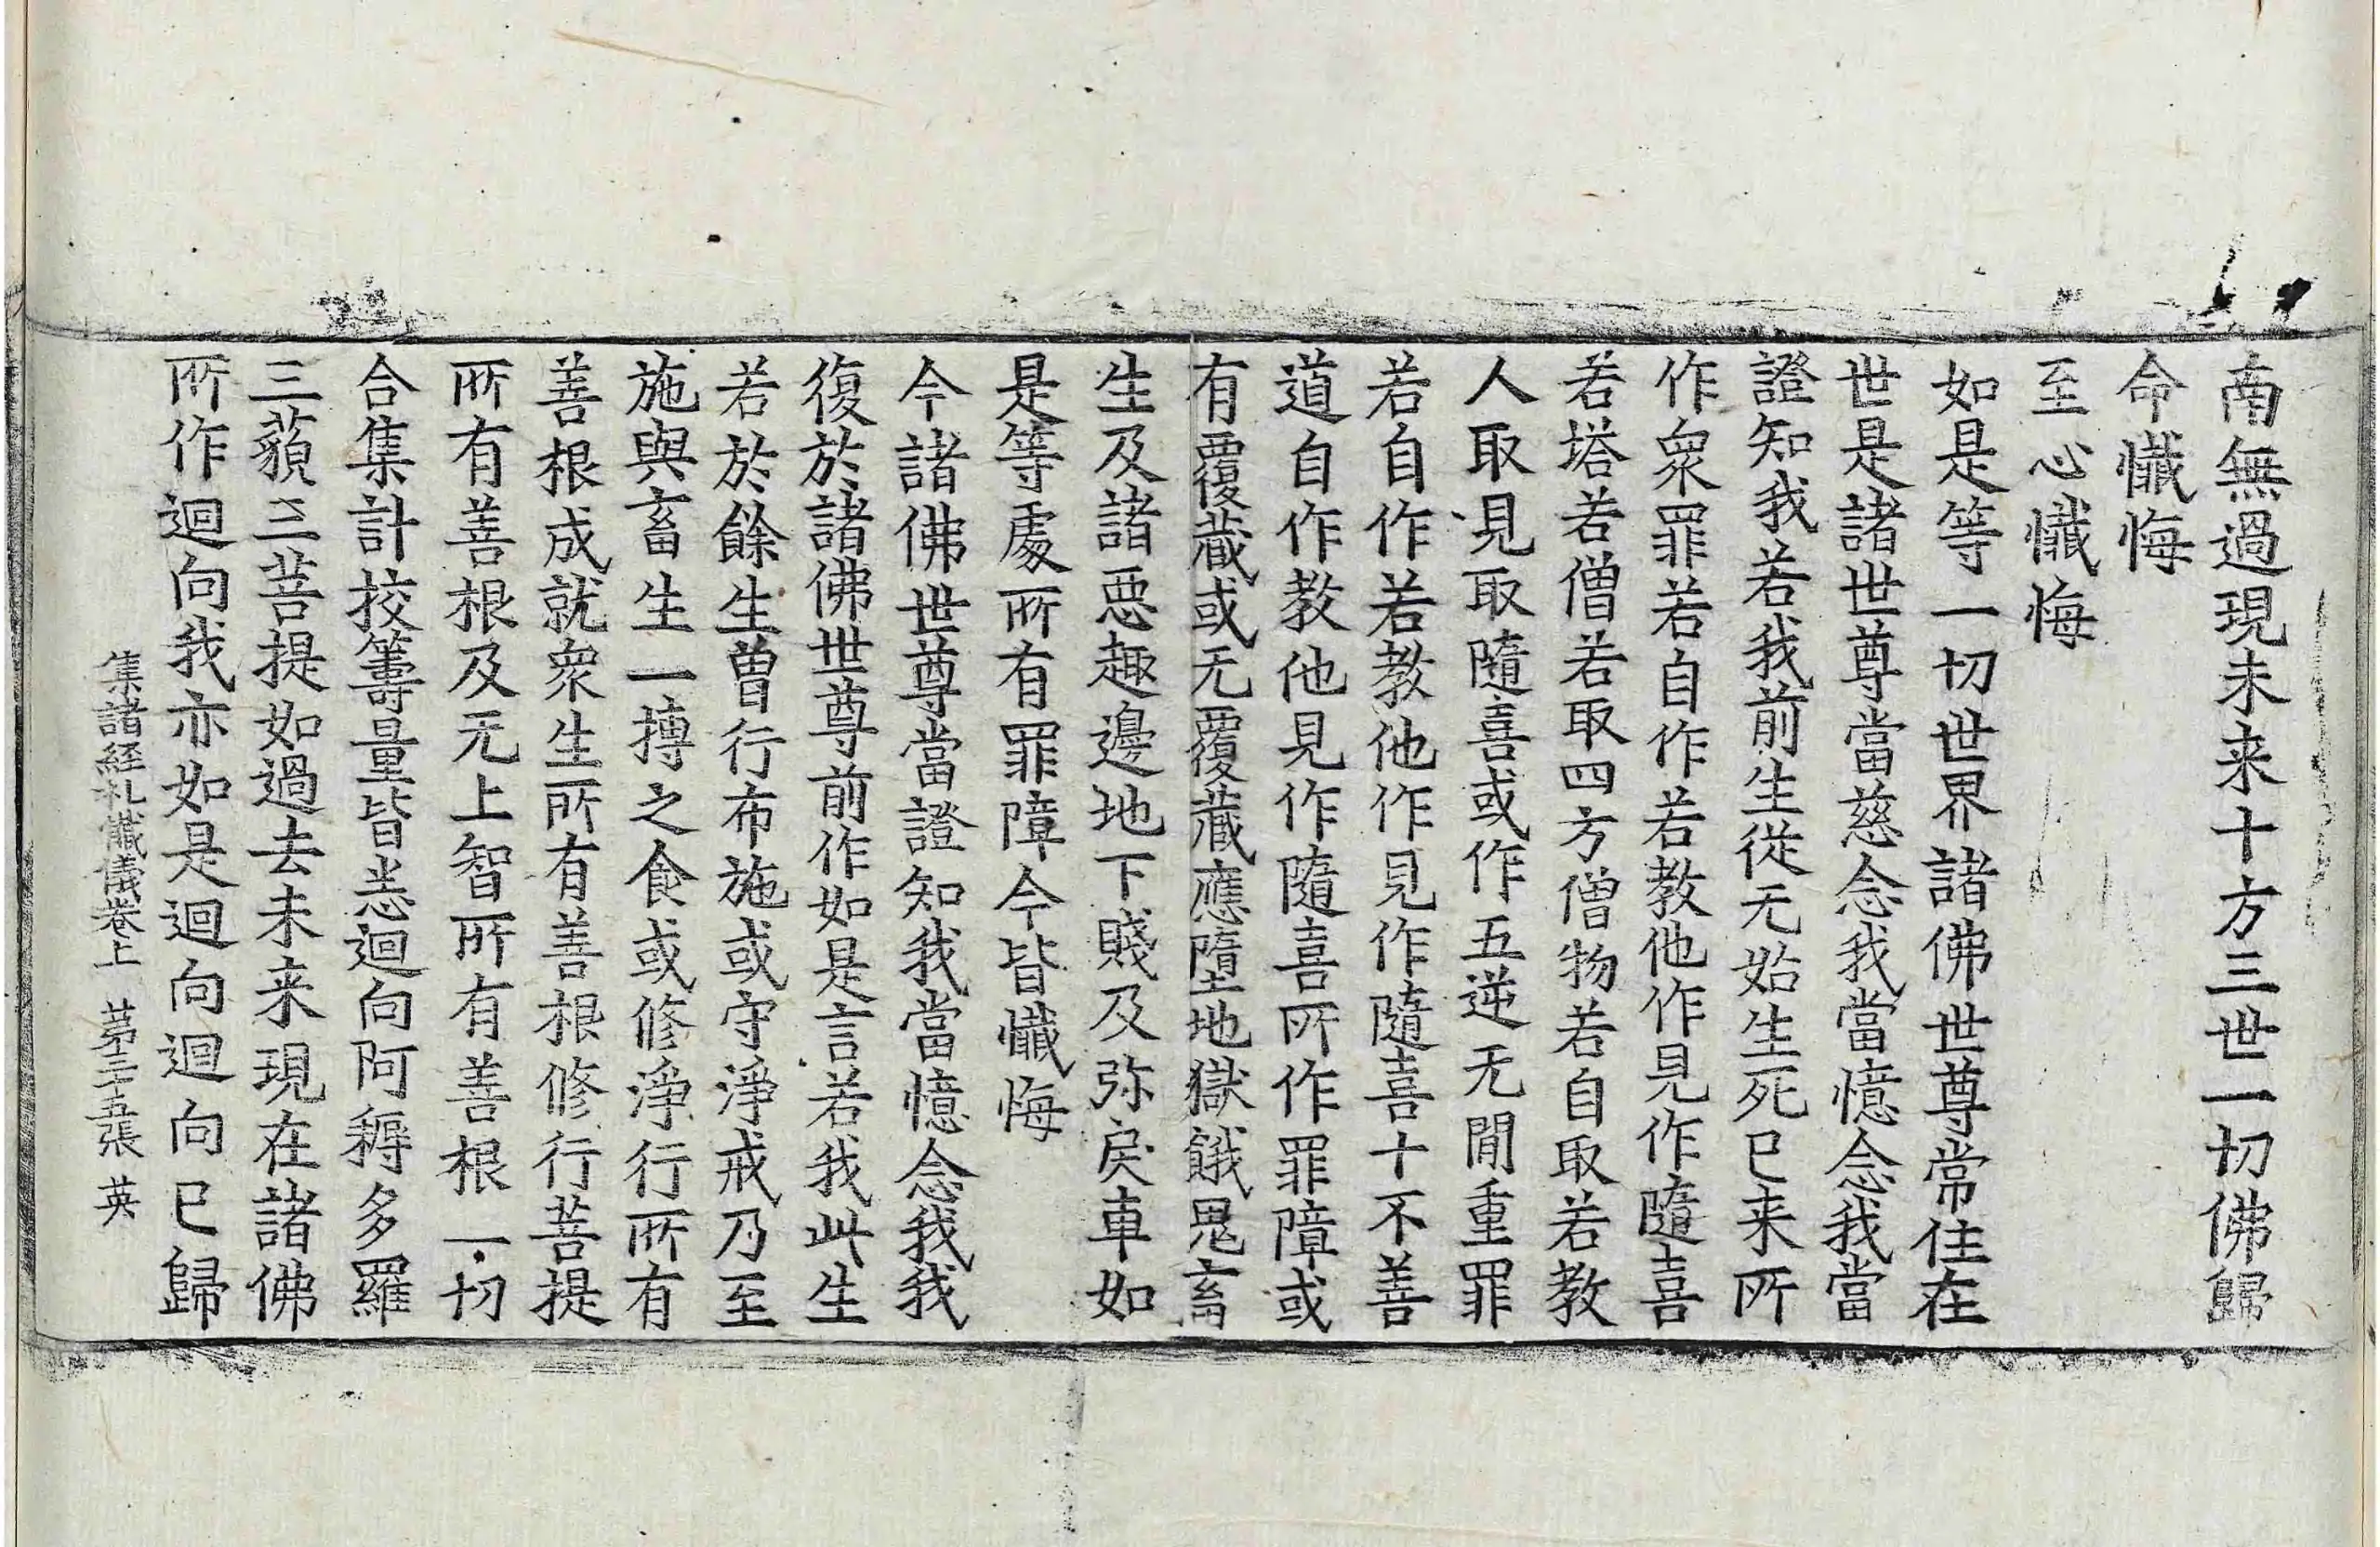 南無過現未来十方三世一切佛歸
命懺悔
至心懺悔
如是等一切世界諸佛世尊常住在
世是諸世尊當慈念我當憶念我當
證知我若我前生從无始生死已来所
作衆罪若自作若教他作見作隨喜
若塔若僧若取四方僧物若自取若教
人取見取隨喜或作五逆无間重罪
若自作若教他作見作隨喜十不善
道自作教他見作隨喜所作罪障或
有覆藏或无覆藏應墮地獄餓鬼畜
生及諸惡趣邊地下賤及弥戾車如
是等處所有罪障今皆懺悔
今諸佛世尊當證知我當憶念我我
復於諸佛世尊前作如是言若我此生
若於餘生曾行布施或守淨戒乃至
施與畜生一摶之食或修淨行所有
善根成就衆生所有善根修行菩提
所有善根及无上智所有善根一切
合集計挍籌量皆悉迴向阿耨多羅
三藐三菩提如過去未来現在諸佛
所作迴向我亦如是迴向迴向已歸
集諸経礼懺儀卷上 苐二十五張 英